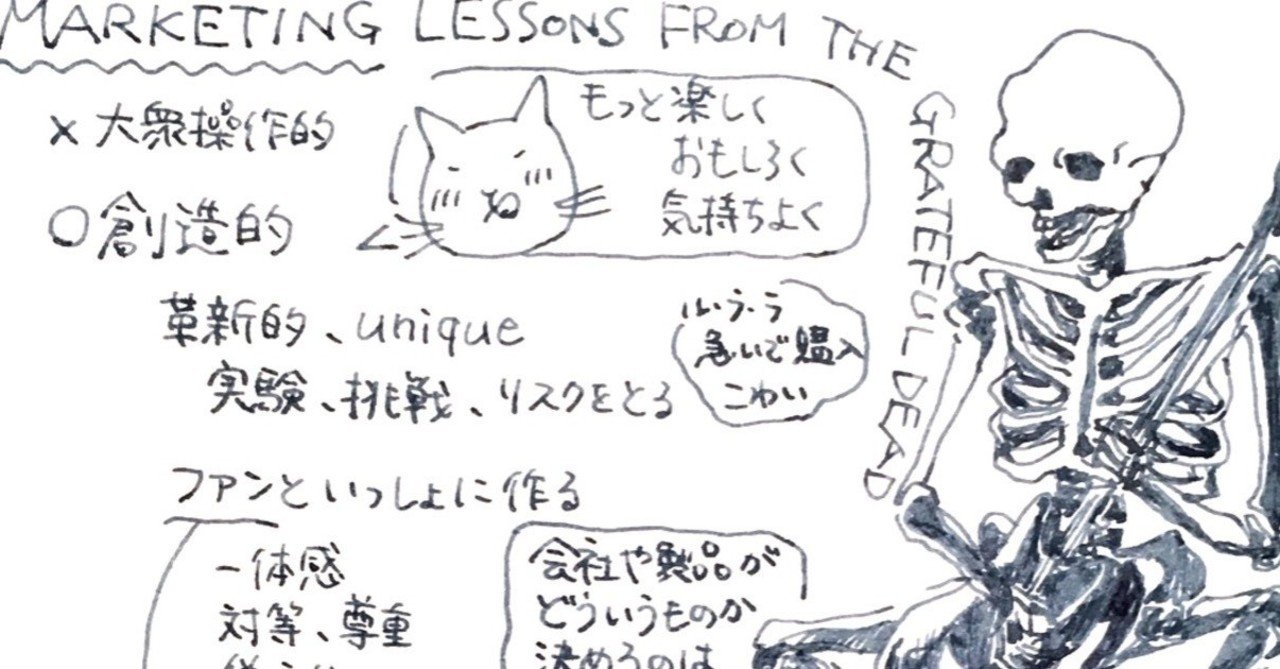 MARKETING LESSONS FROM THE GRATEFUL DEAD
× 大衆操作的
○ 創造的
もっと楽しく
おもしろく
気持ちよく
革新的、unique
実験、挑戦、リスクをとる
急いで購入
こわい
ファンといっしょに作る
一体感
対等、尊重
会社や製品が
どういうものか
決めるのは